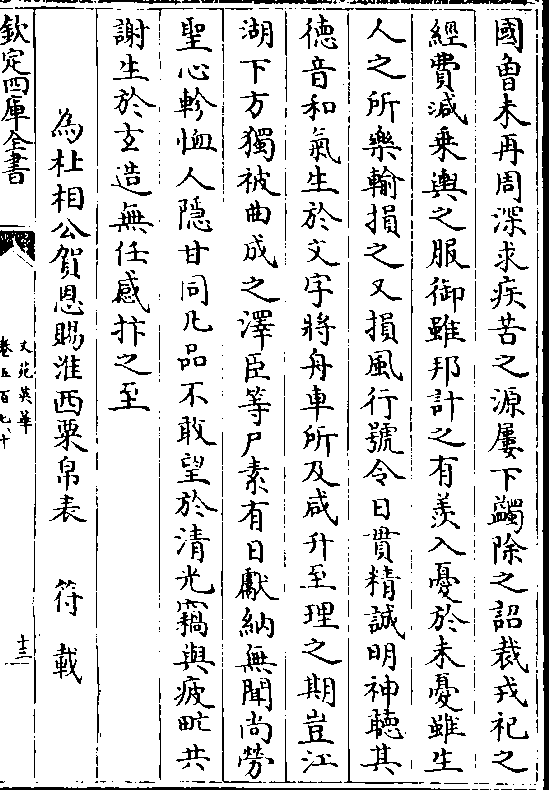 國魯未再周深求疾苦之源屢下蠲除之詔裁戎祀之
經費減乗輿之服御雖邦計之有羨入憂於未憂雖生
人之所樂輸損之又損風行號令日貫精誠明神聽其
徳音和氣生於文字將舟車所及咸升至理之期豈江
湖下方獨被曲成之澤臣等尸素有日獻納無聞尚勞
聖心軫恤人隱甘同凡品不敢望於清光竊與疲甿共
謝生於玄造無任感抃之至
為杜相公賀恩賜淮西粟帛表　　符載
欽定四庫全書
文苑英華
卷五百七十
十三